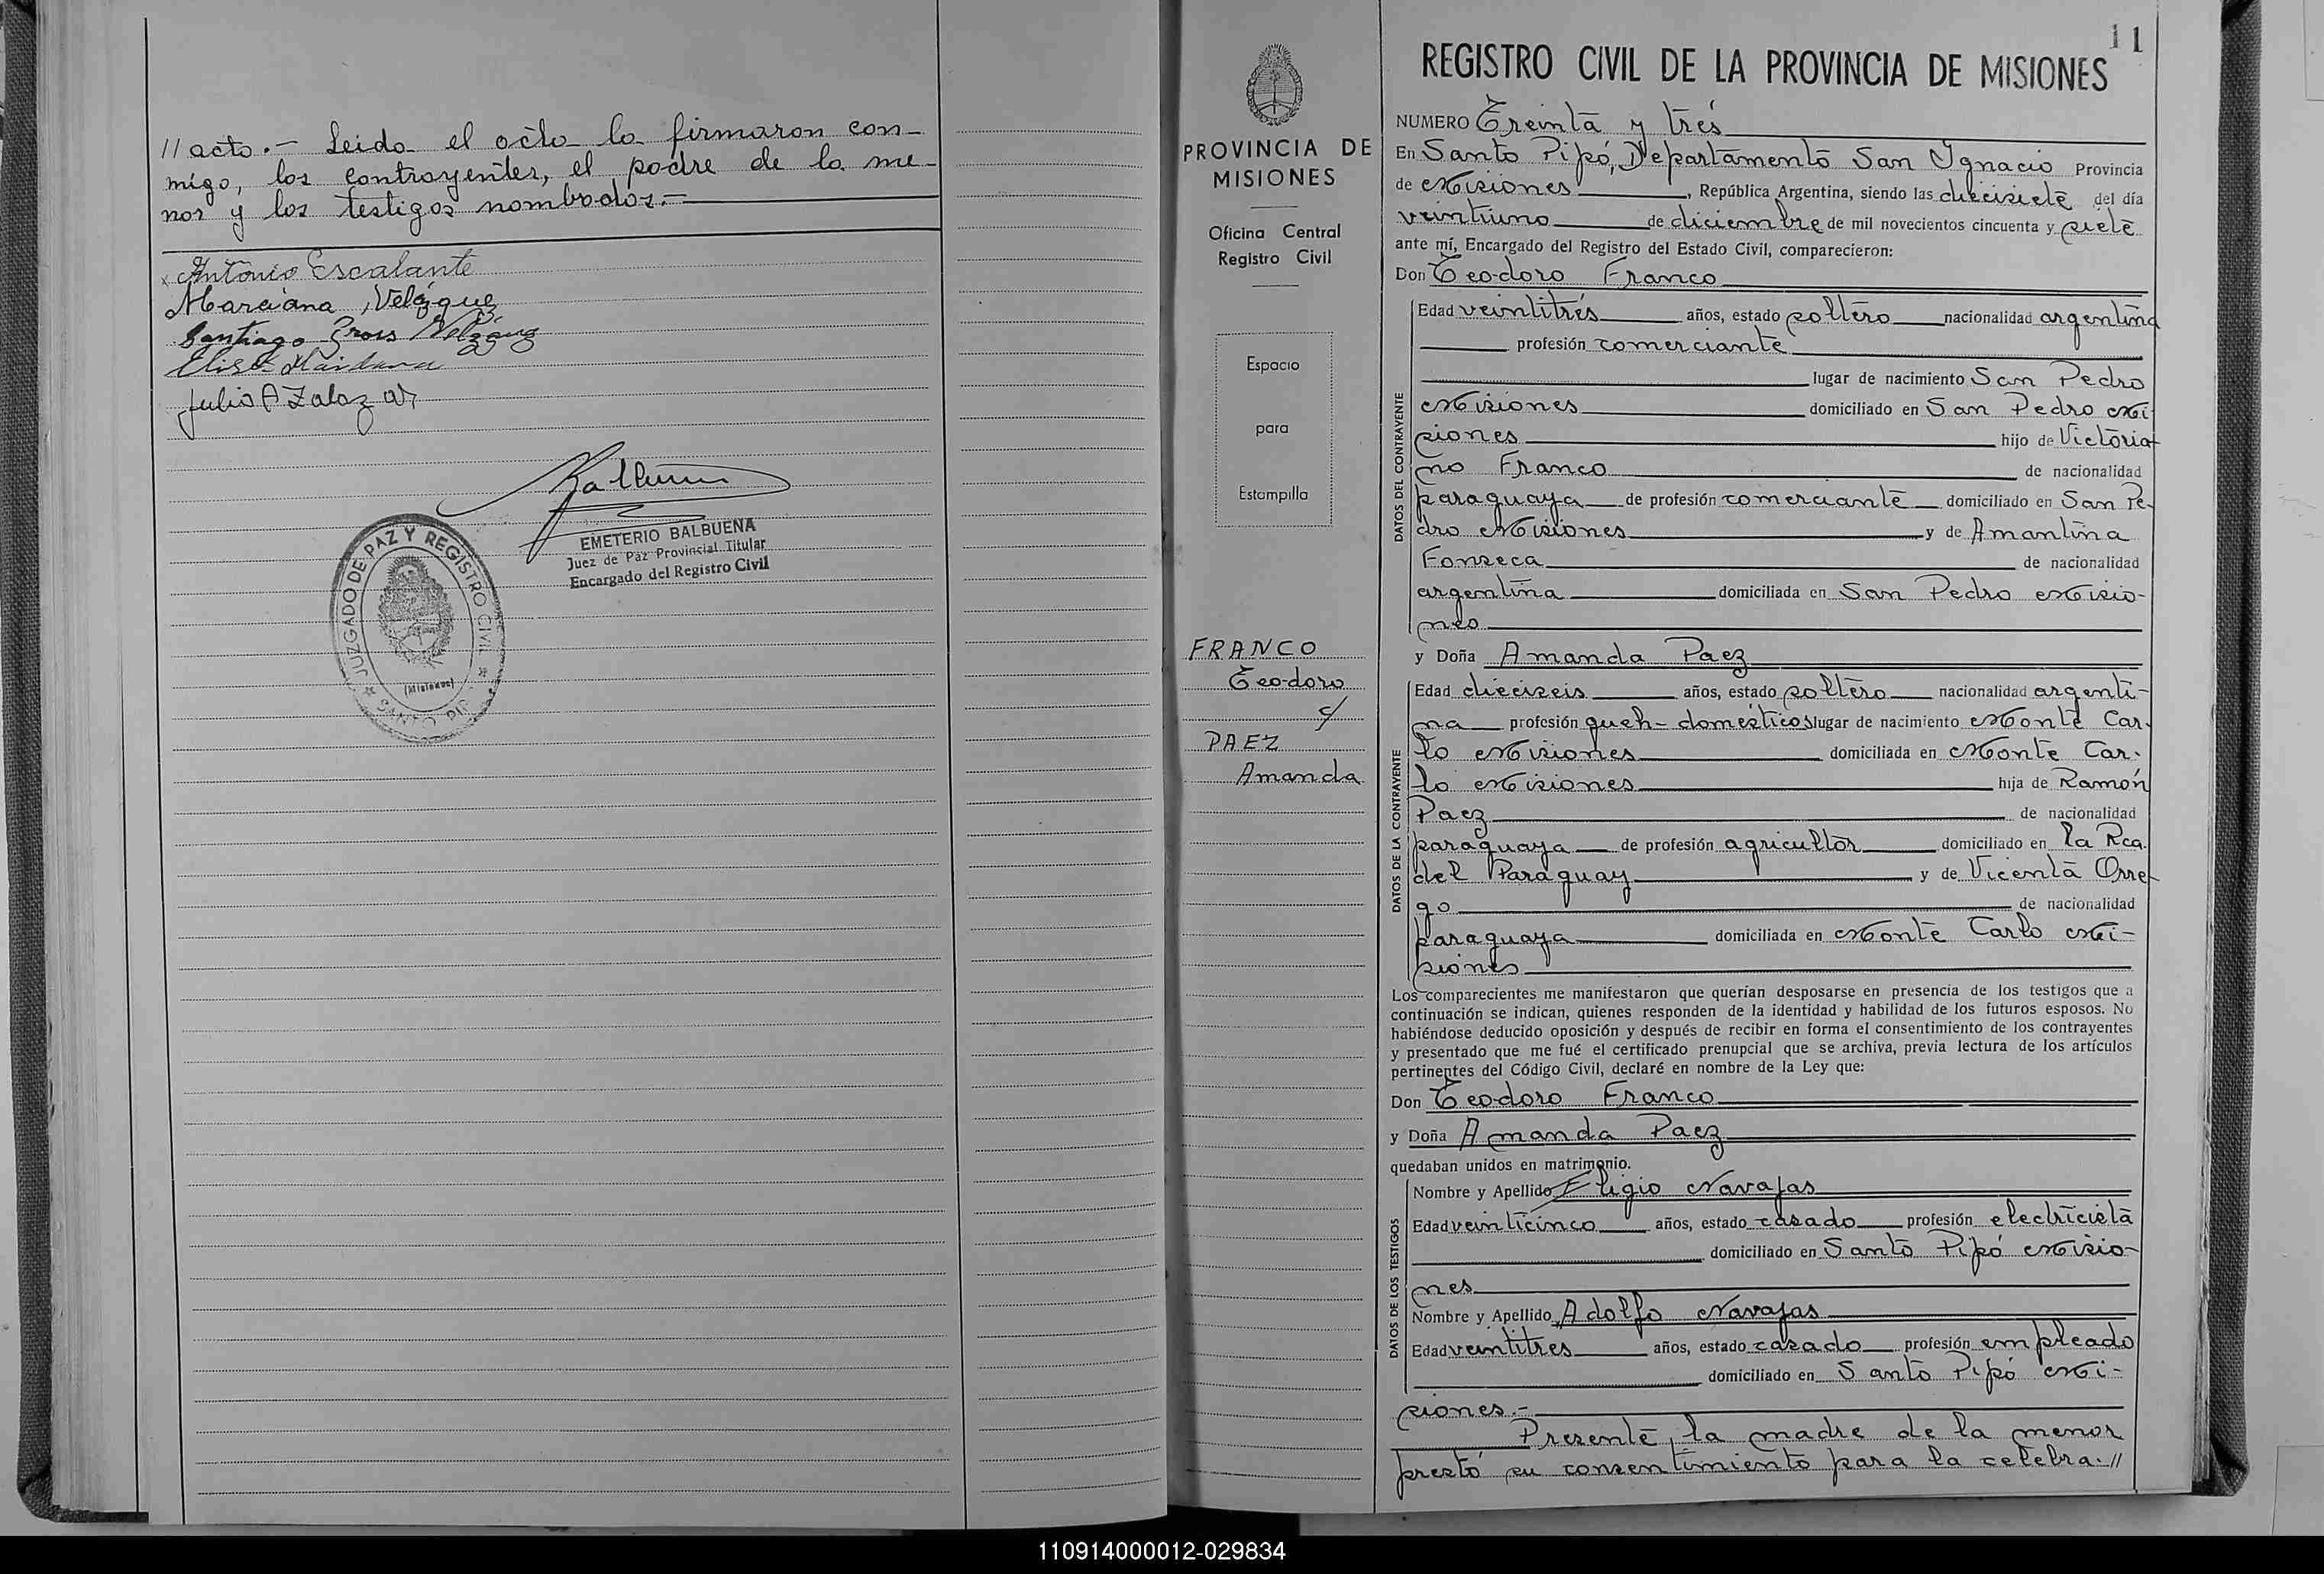 // acto.- Leida el acta la firmaron con-
migo, los contrayentes, el padre de la me-
nor y los testigos nombrados.-
Antonio Escalante
Marciana Velázquez
Santiago
Julio A Zalazar
EMETERIO BALBUENA
Juez de Paz Provincial Titular
Encargado del Registro Civil
JUZGADO DE PAZ Y REGISTRO CIVIL
(Misiones)
SANTO PIPÓ
PROVINCIA DE
MISIONES
Oficina Central
Registro Civil
Espacio
para
Estampilla
FRANCO
Teodoro
c/
PAEZ
Amanda
11
REGISTRO CIVIL DE LA PROVINCIA DE MISIONES
NUMERO Treinta y tres
En Santo Pipó, Departamento San Ignacio Provincia
de Misiones, República Argentina, siendo las diecisiete del día
veintiuno de diciembre de mil novecientos cincuenta y siete
ante mí, Encargado del Registro del Estado Civil, comparecieron:
Don Teodoro Franco
DATOS DEL CONTRAYENTE
Edad veintitrés años, estado soltero nacionalidad argentina
profesión comerciante
lugar de nacimiento San Pedro
Misiones domiciliado en San Pedro Mi-
siones hijo de Victoria-
no Franco de nacionalidad
paraguaya de profesión comerciante domiciliado en San Pe-
dro Misiones y de Amantina
Fonseca de nacionalidad
argentina domiciliada en San Pedro Misio-
nes
y Doña Amanda Paez
DATOS DE LA CONTRAYENTE
Edad dieciseis años, estado soltero nacionalidad argenti-
na profesión queh- domésticos lugar de nacimiento Monte Car-
lo Misiones domiciliada en Monte Car-
lo Misiones hija de Ramón
Paez de nacionalidad
paraguaya de profesión agricultor domiciliado en la Rca.
del Paraguay y de Vicenta Orre-
go de nacionalidad
paraguaya domiciliada en Monte Carlo Mi-
siones
Los comparecientes me manifestaron que querían desposarse en presencia de los testigos que a
continuación se indican, quienes responden de la identidad y habilidad de los futuros esposos. No
habiéndose deducido oposición y después de recibir en forma el consentimiento de los contrayentes
y presentado que me fué el certificado prenupcial que se archiva, previa lectura de los artículos
pertinentes del Código Civil, declaré en nombre de la Ley que:
Don Teodoro Franco
y Doña Amanda Paez
quedaban unidos en matrimonio.
DATOS DE LOS TESTIGOS
Nombre y Apellido Eligio Navajas
Edad veinticinco años, estado casado profesión electricista
domiciliado en Santo Pipó Misio-
nes
Nombre y Apellido Adolfo Navajas
Edad veintitres años, estado casado profesión empleado
domiciliado en Santo Pipó Mi-
siones.-
Presente la madre de la menor
prestó su consentimiento para la celebra-//
110914000012-029834